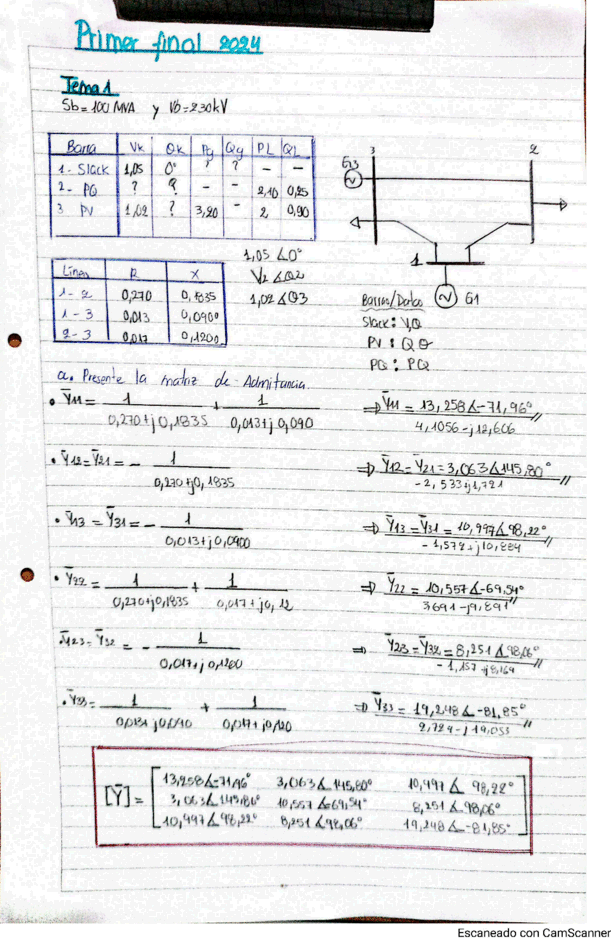 Primer final 2024
Tema 1
Sb=100 MVA y Vb=230kV
Barra Vk θk Pg Qg PL QL
1- Slack 1,05 0° ? ? - -
2- PQ ? ? - - 2,10 0,25
3 PV 1,02 ? 3,20 - 2 0,90
3 2
G3
1
G1
1,05 ∡0°
V2 ∡θ2
1,02 ∡θ3
Líneas R X
1-2 0,270 0,1835
1-3 0,013 0,0900
2-3 0,017 0,1200
Barras/Datos
Slack: V,θ
PV: Q θ
PQ: PQ
a. Presente la matriz de Admitancia.
• Y11 = 1/(0,270+j0,1835) + 1/(0,013+j0,090) ⇒ Y11 = 13,258∡-71,96°
4,1056-j12,606
• Y12=Y21= - 1/(0,270+j0,1835) ⇒ Y12=Y21=3,063∡145,80°
-2,533+j1,721
• Y13 = Y31 = - 1/(0,013+j0,0900) ⇒ Y13=Y31= 10,997∡98,22°
-1,572+j10,884
• Y22 = 1/(0,270+j0,1835) + 1/(0,017+j0,12) ⇒ Y22 = 10,557∡-69,54°
3,691-j9,891
Y23=Y32 = - 1/(0,017+j0,1200) ⇒ Y23=Y32=8,251∡98,06°
-1,157+j8,169
• Y33= 1 + 1/(0,017+j0,120) ⇒ Y33 = 19,248∡-81,85°
2,729-j19,053
[Y] = [13,258∡-71,96° 3,063∡145,80° 10,997∡98,22°
3,063∡145,80° 10,557∡-69,54° 8,251∡98,06°
10,997∡98,22° 8,251∡98,06° 19,248∡-81,85°]
Escaneado con CamScanner